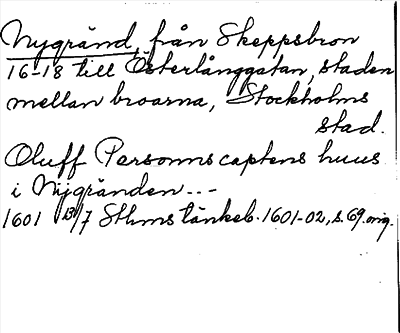 Nygränd, från Skeppsbron
16-18 till Österlånggatan, staden
mellan broarna, Stockholms
stad.
Oluff Personns captens huus
i Nygränden...-
1601 13/7 Sthms tänkeb. 1601-02, s. 69. orig.